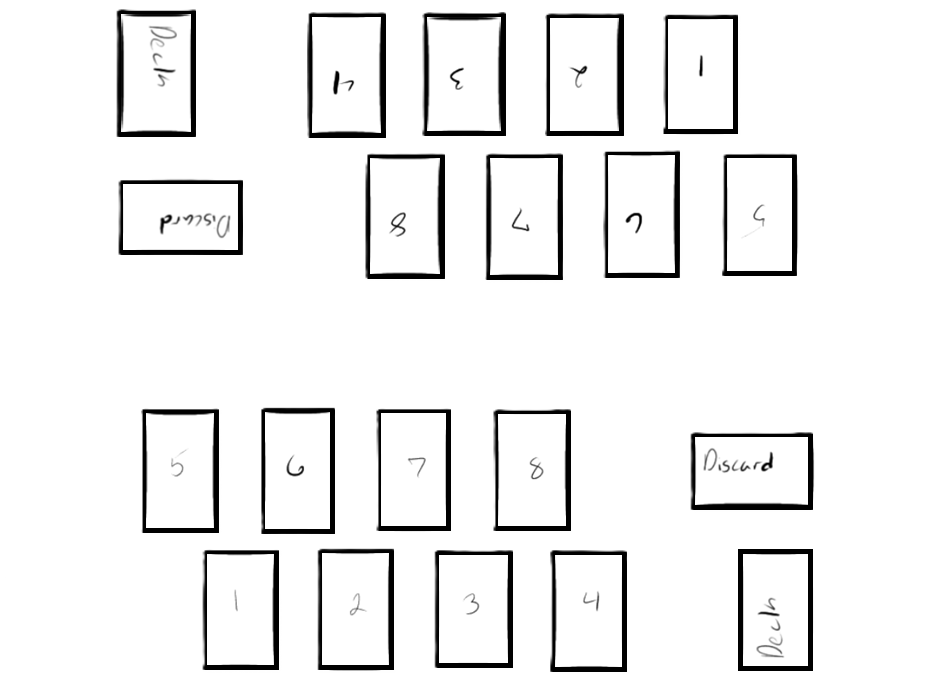 Deck
4 3 2 1
Discard
8 7 6 5
5 6 7 8
Discard
1 2 3 4
Deck